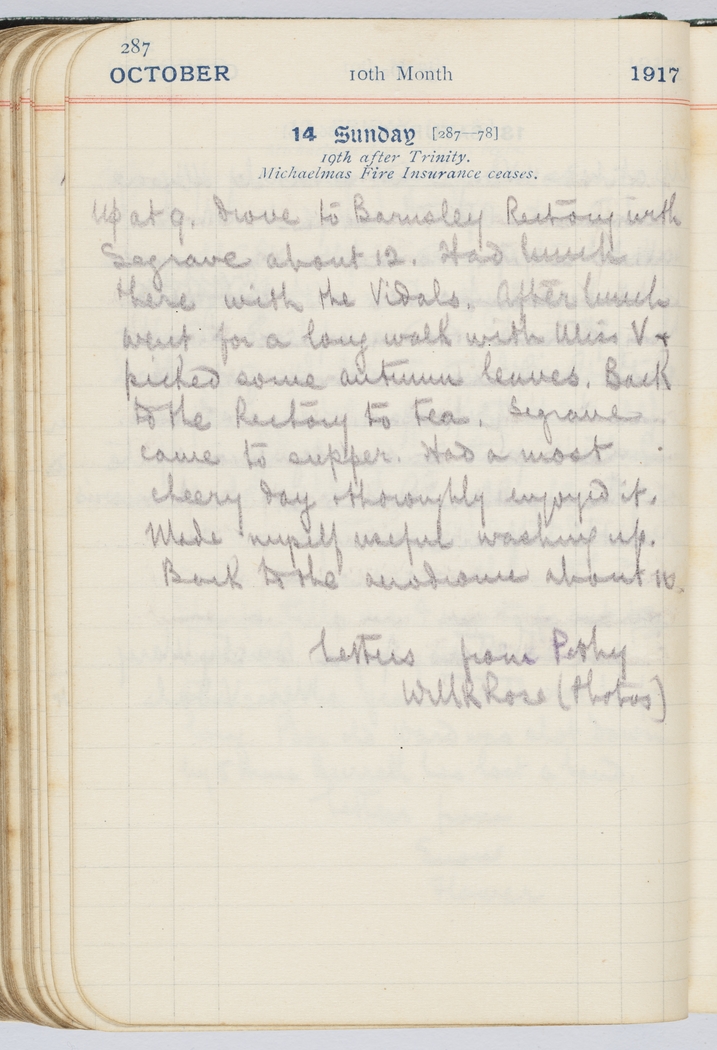 287
OCTOBER 10th Month 1917
14 Sunday [287—78]
19th after Trinity.
Michaelmas Fire Insurance ceases.
Up at 9. Drove to Barnsley Rectory with
Segrave about 12. Had lunch
there with the Vidals. After lunch
went for a long walk with Miss V +
picked some autumn leaves. Back
to the Rectory to tea. Segrave
came to supper. Had a most
cheery day + thoroughly enjoyed it.
Made myself useful washing up.
Back to the aerodrome about 10.
Letters from Pethy
Rose (Photos)